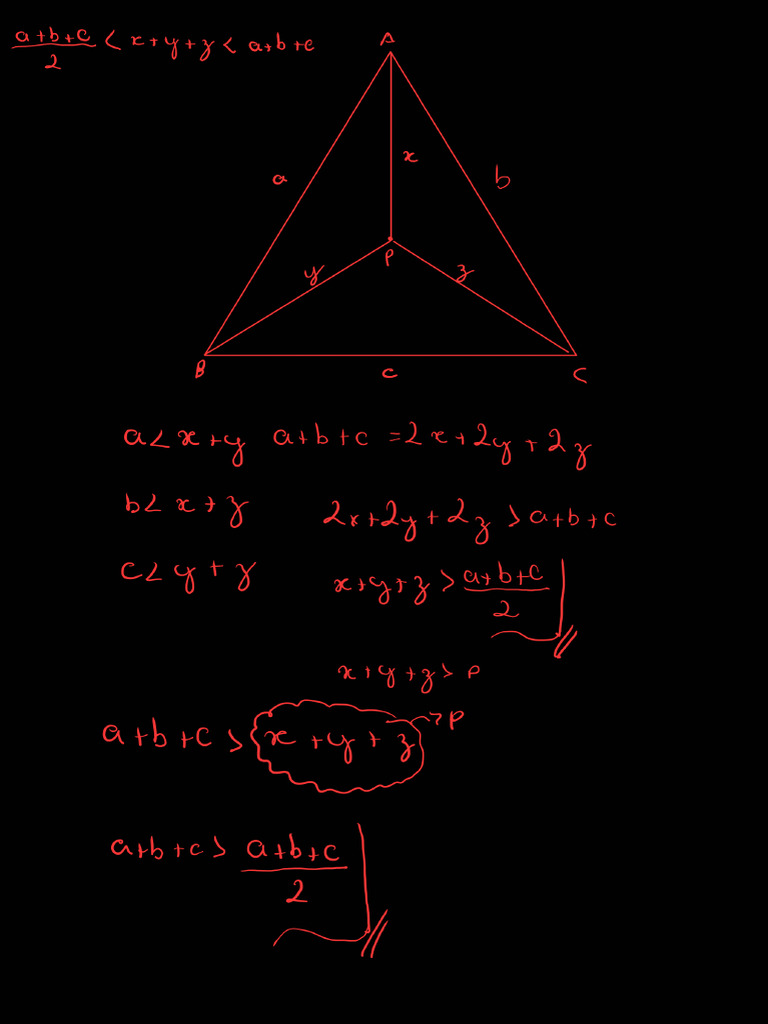 (a+b+c)/2 < x+y+z < a+b+c
A
a
x
b
P
y
z
B
c
C
a < x+y a+b+c = 2x+2y+2z
b < x+z 2x+2y+2z > a+b+c
c < y+z x+y+z > (a+b+c)/2
x+y+z > P
a+b+c > x+y+z → P
a+b+c > (a+b+c)/2